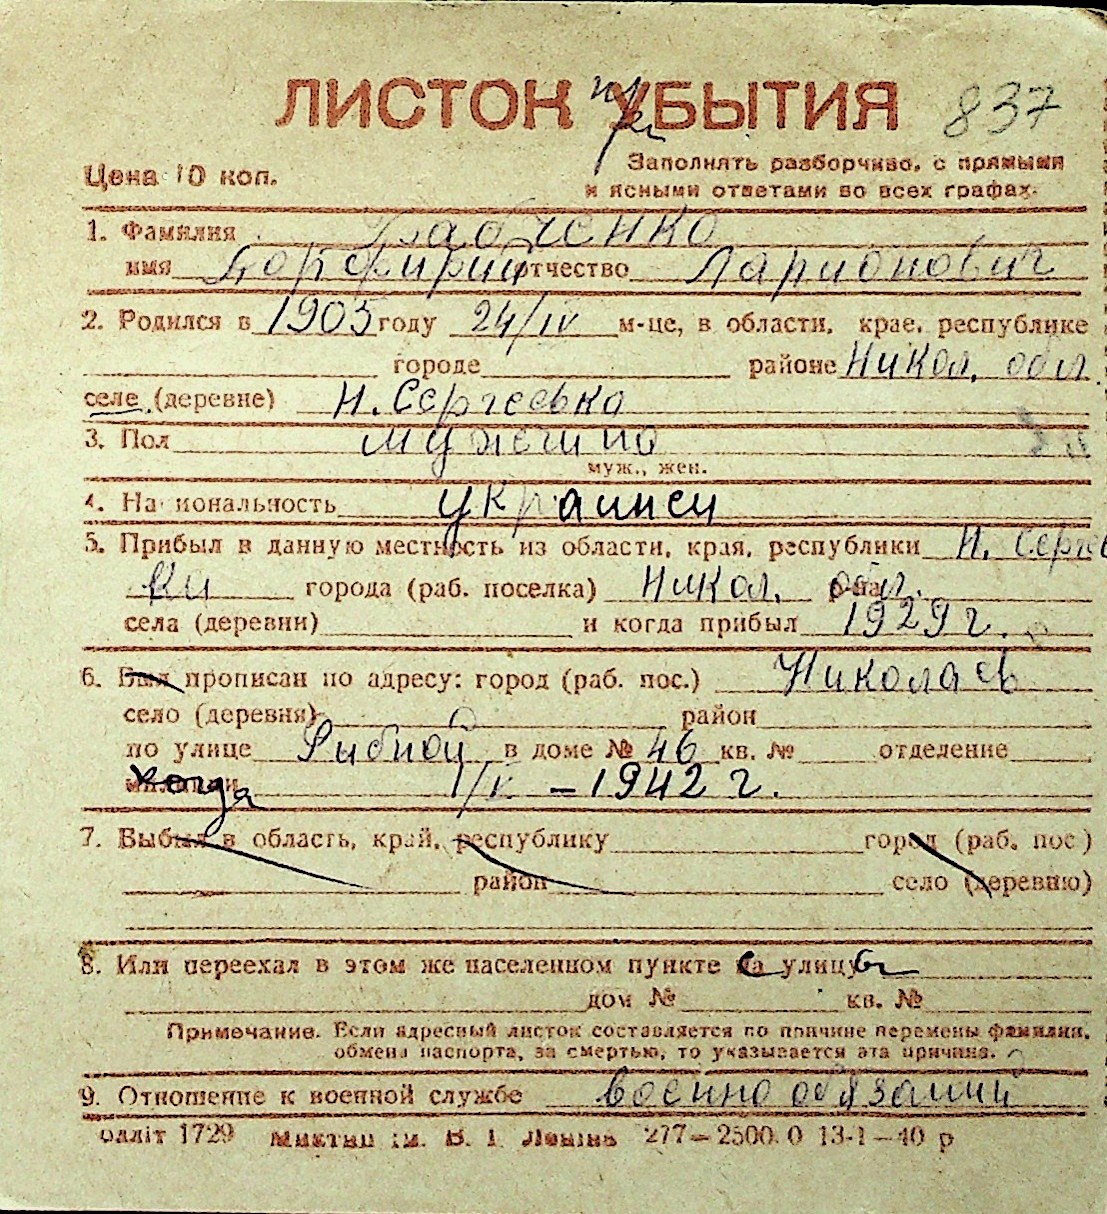 ЛИСТОК УБЫТИЯ 837
при
Цена 10 коп.
Заполнять разборчиво, с прямыми
и ясными ответами во всех графах.
1. Фамилия
имя Порфирий отчество Ларионович
2. Родился в 1905 году 24/IV м-це, в области, крае, республике
городе районе Никол. обл.
селе (деревне) Н. Сергеевка
3. Пол мужчина
муж., жен.
4. Национальность украинец
5. Прибыл в данную местность из области, края, республики Н. Сергеев
ки города (раб. поселка) Никол. обл.
села (деревни) и когда прибыл 1929 г.
6. Был прописан по адресу: город (раб. пос.) Николаев
село (деревня) район
по улице Рыбной в доме № 46 кв. № отделение
милиции когда 1/V – 1942 г.
7. Выбыл в область, край, республику город (раб. пос)
район село (деревню)
8. Или переехал в этом же населенном пункте на улицу
дом № кв. №
Примечание. Если адресный листок составляется по причине перемены фамилии,
обмена паспорта, за смертью, то указывается эта причина.
9. Отношение к военной службе военнообязанный
одліт 1729 ім. В. І. Леніна 277—2500.0 13-1—40 р